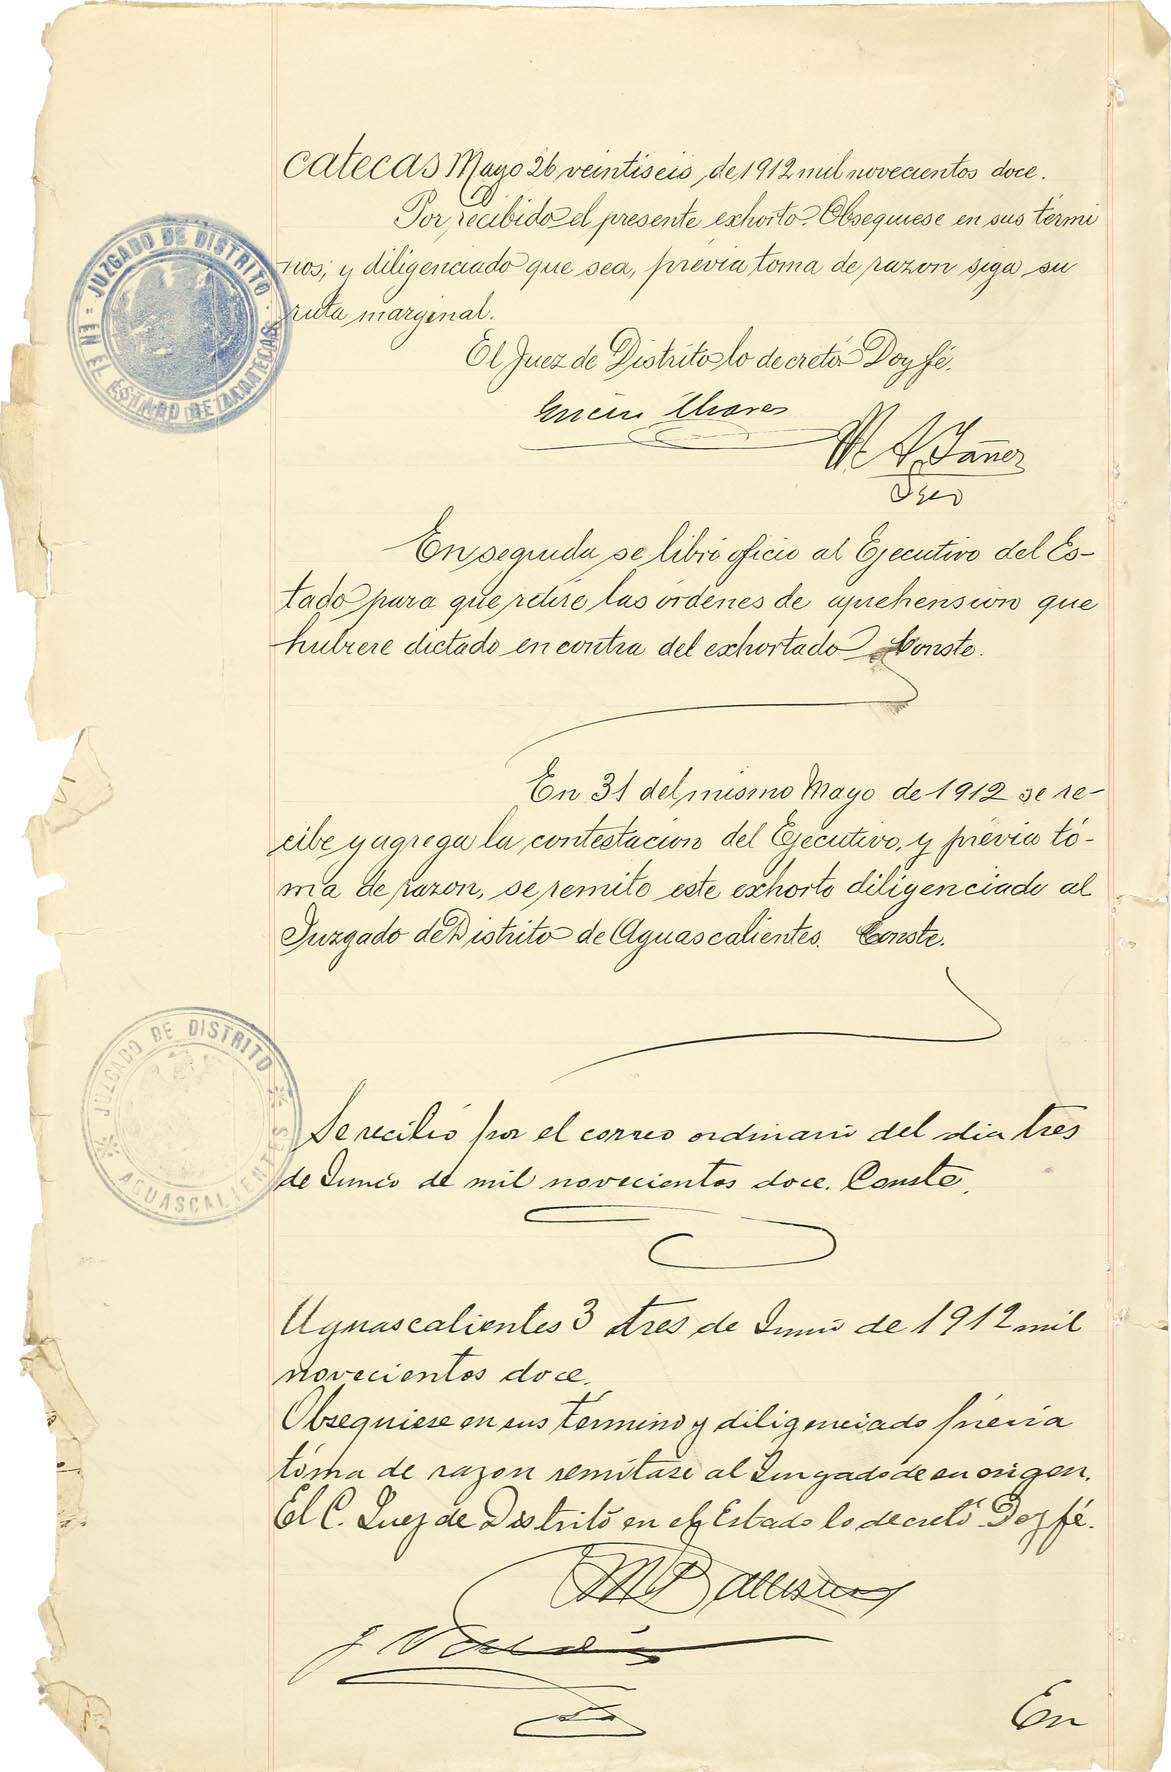 catecas Mayo 26 veintiseis, de 1912 mil novecientos doce.
Por recibido el presente exhorto. Obsequiese en sus térmi
nos; y diligenciado que sea, prévia toma de razon siga su
ruta marginal.
JUZGADO DE DISTRITO
EN EL ESTADO DE ZACATECAS
El Juez de Distrito lo decretó. Doy fé.
M. A. Yañez
Srio
En seguida se libró oficio al Ejecutivo del Es-
tado para que retire las órdenes de aprehension que
hubiere dictado en contra del exhortado Conste.
En 31 del mismo Mayo de 1912 se re-
cibe y agrega la contestacion del Ejecutivo, y prévia tó-
ma de razon, se remite este exhorto diligenciado al
Juzgado de Distrito de Aguascalientes. Conste.
JUZGADO DE DISTRITO
AGUASCALIENTES
Se recibió por el correo ordinario del dia tres
de Junio de mil novecientos doce. Conste.
Aguascalientes 3 tres de Junio de 1912 mil
novecientos doce.
Obsequiese en sus término y diligenciado prévia
tóma de razon remitase al Juzgado de su origen.
El C. Juez de Distritó en el Estado lo decretó. Doy fé.
En